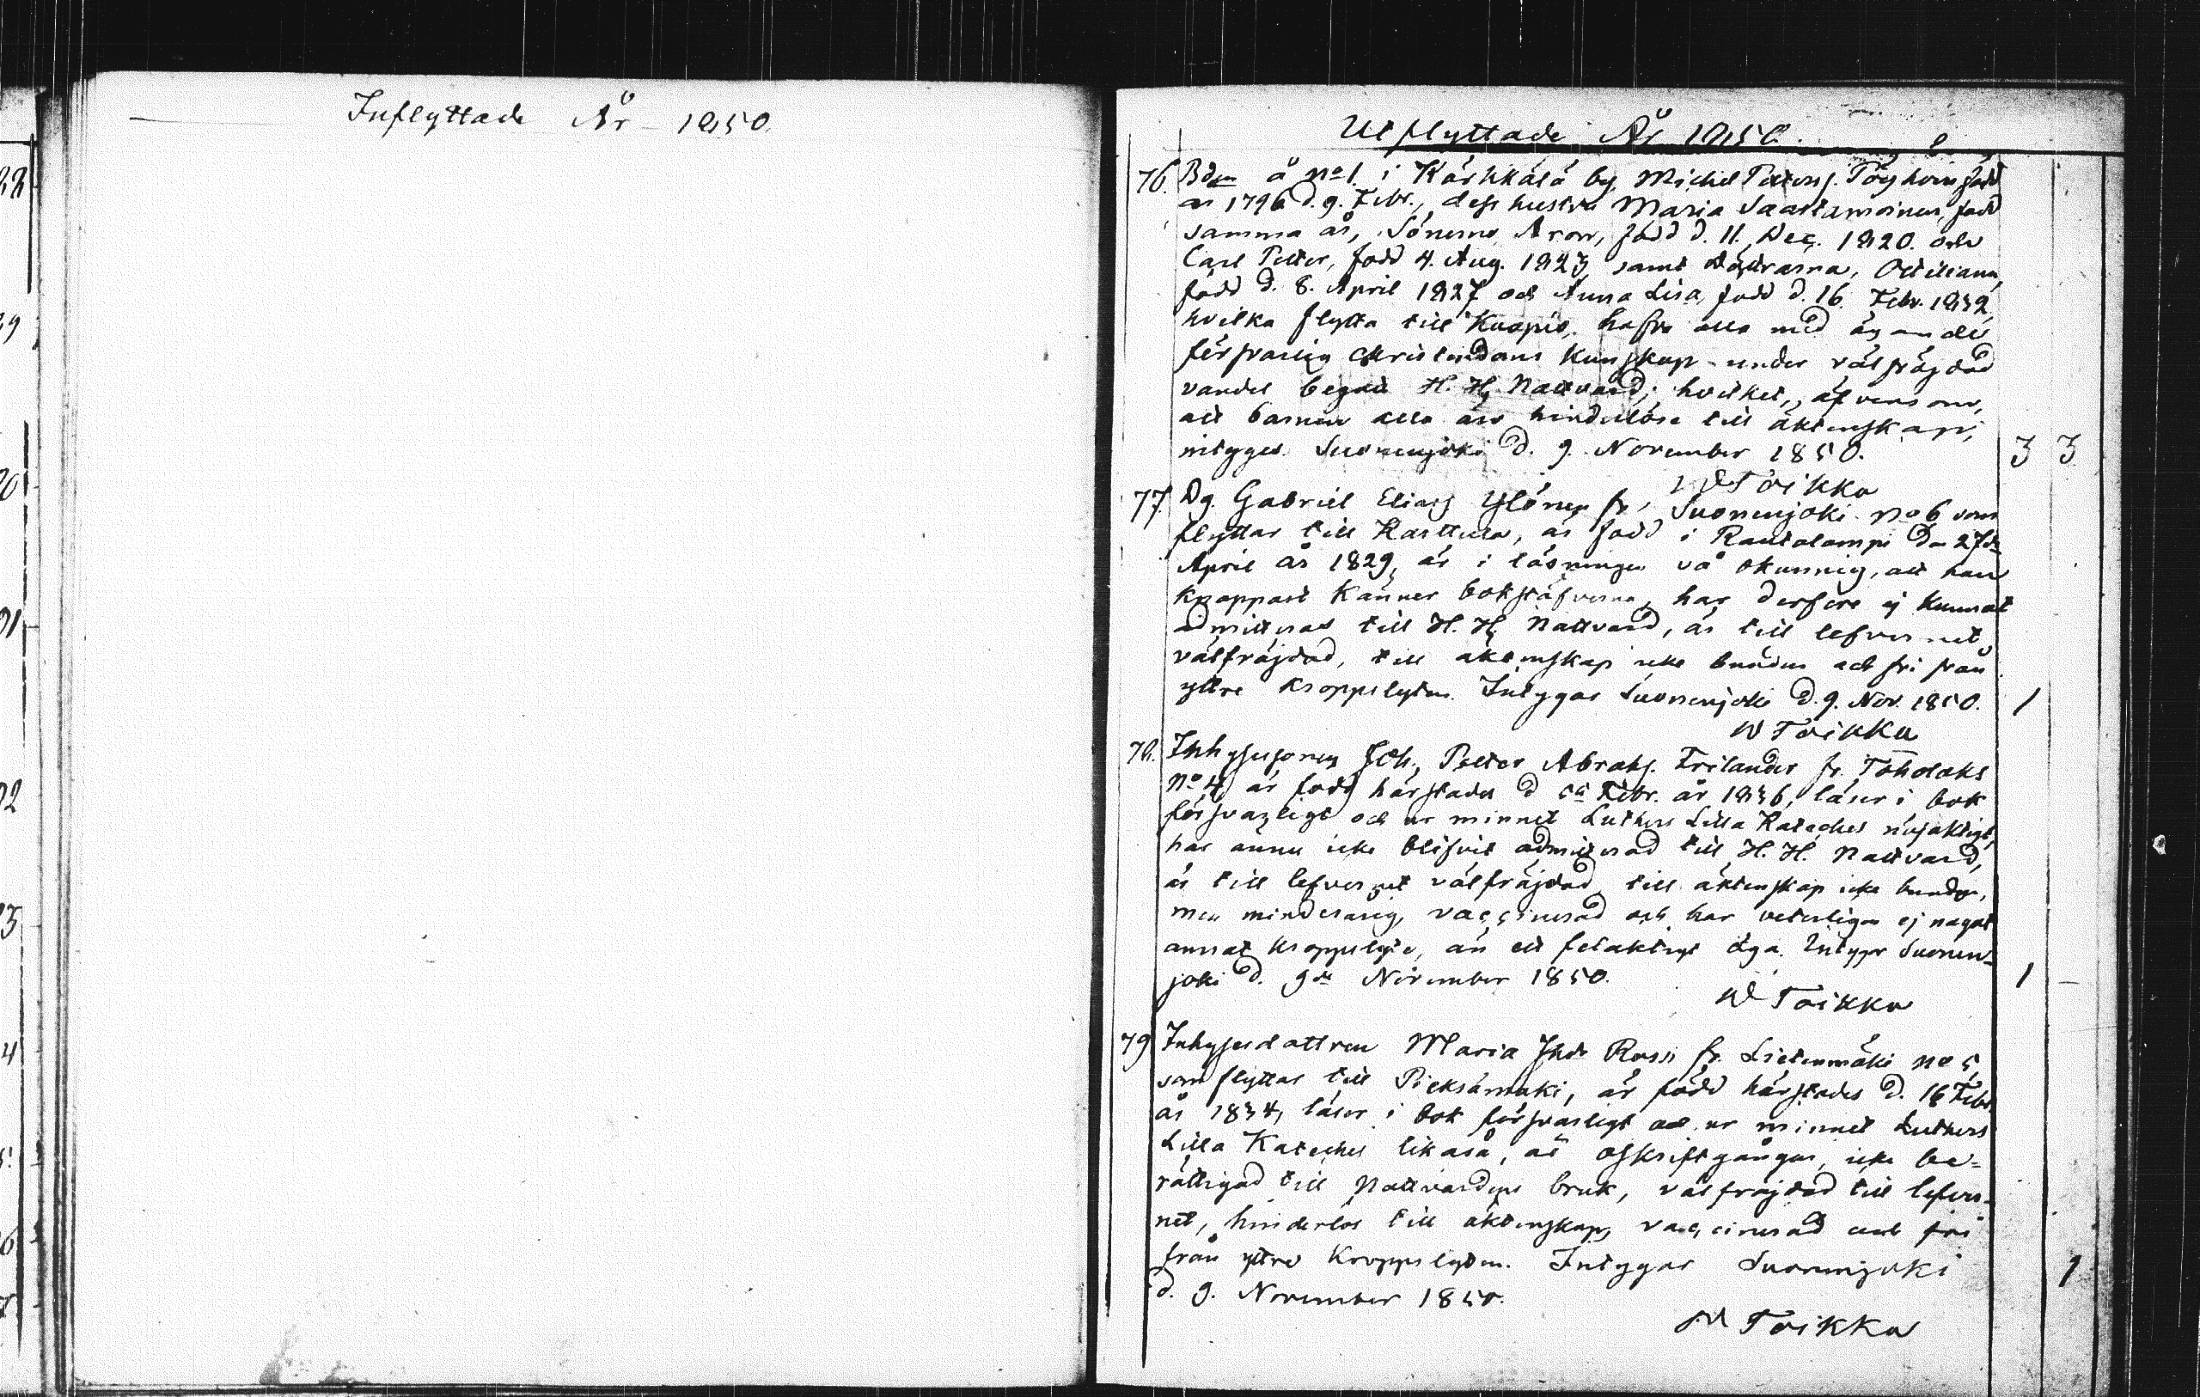 Inflyttade År 1850.
Utflyttade År 1850.
76. Bdn å No 1. i Kärkkälä by, Michel Petterss. född
år 1796 d. 9. Febr., dess hustru Maria Saastamoinen, född
samma år, Sönerne Aron, född d. 11. Dec. 1820. och
Carl Petter, född 4. Aug. 1823, samt döttrarna,
född d. 8. April 1827 och Anna Lisa, född d. 16. Febr. 1832,
hvilka flytta till Kuopio, hafva alla med ägande
försvarlig christendoms kunskap under välfräjdad
vandel begått H. H. Nattvard; hvilket, äfvensom,
att barnen alla äro hinderlösa till äktenskap,
intygas. Suonenjoki d. 9. November 1850. 3 3
Toikka
77. Dg. Gabriel Eliass Ylönen fr. Suonenjoki No 6 som
flyttar till Karttula, är född i Rautalampi den 27de
April år 1829, är i läsningen så okunnig, att han
knappast känner bokstäfverna, har derföre ej kunnat
admitteras till H. H. Nattvard, är till lefvernet
välfräjdad, till äktenskap icke bunden och fri från
yttre kroppslyten. Intygas Suonenjoki d. 9. Nov. 1850. 1
W Toikka
78. Inhysesonen Joh. Petter Abrahs. Frilander fr. Toholaks
No 4, är född härstädes d. Febr. år 1836, läser i bok
försvarligt och ur minnet Luthers Lilla Kateches nöjaktigt,
har ännu icke blifvit admitterad till H. H. Nattvard,
är till lefvernet välfräjdad, till äktenskap icke bunden,
men minderårig, vaccinerad och har veterligen ej något
annat kroppslyte, än ett felaktigt öga. Intygar Suonen-
joki d. 9de November 1850. 1 –
W Toikka
79 Inhysesdottren Maria Jhdr Rossi fr. Lietenmäki No 5,
som flyttar till Pieksämäki, är född härstädes d. 16 Febr.
år 1834, läser i bok försvarligt och ur minnet Luthers
Lilla Kateches likaså, är oskriftgången, icke be=
rättigad till Nattvardens bruk, välfräjdad till lefver-
net, hinderlös till äktenskap, vaccinerad och fri
från yttre kroppslyten. Intygar Suonenjoki 1
d. 9. November 1850.
W Toikka